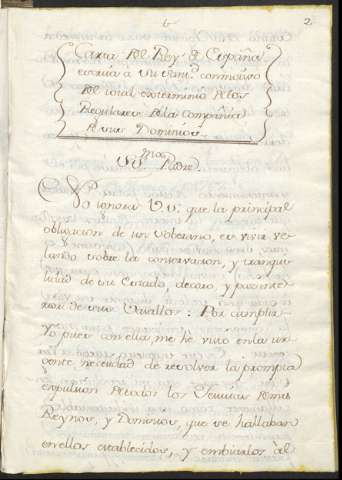 2
Carta del Rey de España
escrita a su Sant.d con motivo
del total exterminio de los
Regulares de la Compañia
de sus Dominios.
SS.mo Padre.
No ignora V.S. que la principal
obligacion de un Soberano, es vivir ve-
lando sobre la conservacion, y tranqui-
lidad de su Estado, decoro, y paz inte-
rior de sus Vasallos: Por cumplir
Yo pues con ella, me hè visto en la ur-
gente necesidad de resolver la prompta
expulsion de todos los Jesuitas de mis
Reynos, y Dominios, que se hallaban
en ellos establecidos, y embiarlos àl